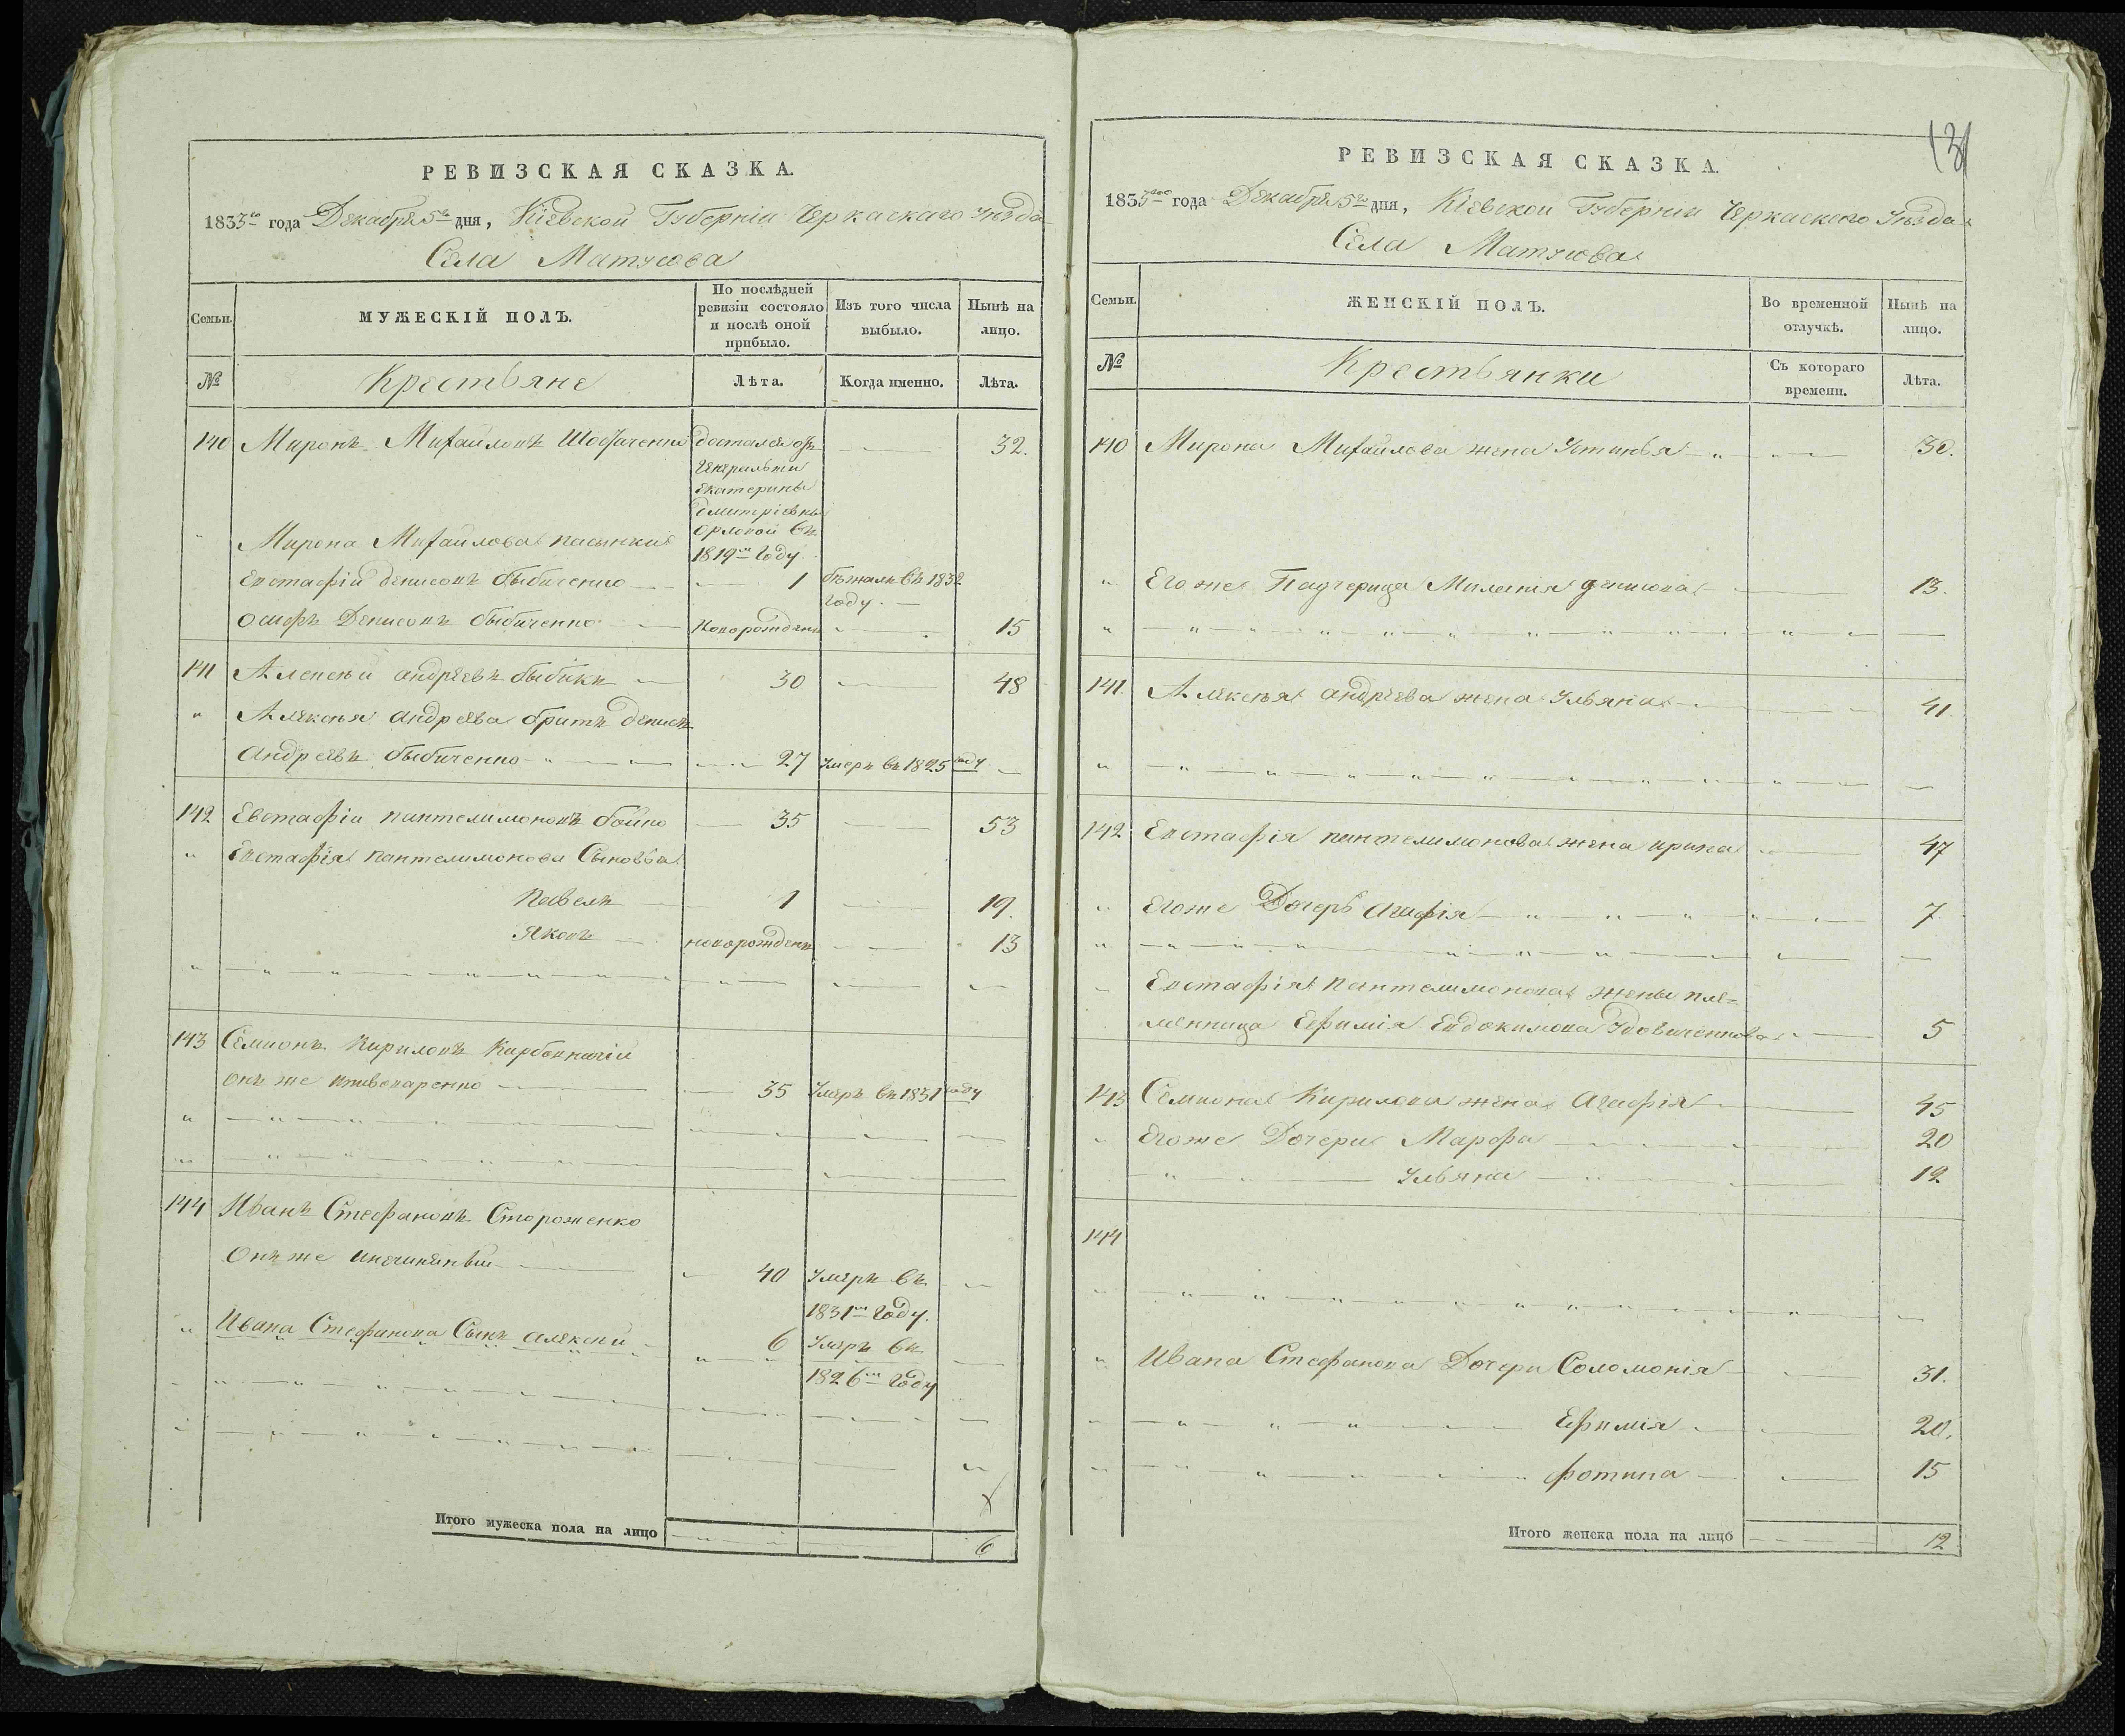 РЕВИЗСКАЯ СКАЗКА.
1833го года Декабря 5го дня, Кіевской Губерніи Черкаскаго Уѣзда
Села Матусова
Семьи.
МУЖЕСКІЙ ПОЛЪ.
По послѣдней ревизіи состояло и послѣ оной прибыло.
Изъ того числа выбыло.
Нынѣ на лицо.
№
Крестьяне
Лѣта.
Когда именно.
Лѣта.
140 Миронъ Михайловъ достался отъ 32.
Генеральши
Екатерины
Дмитріевны
Орловой въ
1819м году
Мирона Михайлова пасынки
Евстафій Денисовъ Бибиченко 1 бѣжалъ въ 1832
году.
Осифъ Денисовъ Бибиченко Новорожденъ 15
141 Алексѣй Андреевъ Бибикъ 30 48
Алексѣя Андреева братъ Денисъ
Андреевъ Бибиченко 27 Умеръ въ 1825 году
142 Евстафій Пантелимоновъ Бойко 35 53
Евстафія Пантелимонова Сыновья
Павелъ 1 19.
Яковъ новорожденъ 13
143 Семионъ Кириловъ
Онъ же 35 Умеръ въ 1831 году
144 Иванъ Стефановъ Стороженко
Онъ же 40 Умеръ въ
1831м году.
Ивана Стефанова Сынъ Алексѣй 6 Умеръ въ
1826м году
Итого мужеска пола на лицо 6
131
РЕВИЗСКАЯ СКАЗКА.
1833го года Декабря 5го дня, Кіевской Губерніи Черкаского Уѣзда
Села Матусова
Семьи.
ЖЕНСКІЙ ПОЛЪ.
Во временной отлучкѣ.
Нынѣ на лицо.
№
Крестьянки
Съ котораго времени.
Лѣта.
140 Мирона Михайлова жена Устинья 30.
Его же Падчерица Миланія Денисова 13.
141. Алексѣя Андреева жена Ульяна 41.
142 Евстафія Пантелимонова жена Ирина 47
Его же Дочерь Агафія 7
Евстафія Пантелимонова жены пле=
менница Ефимія Евдокимова Удовиченкова 5
143 Семиона Кирилова жена Агафія 45
Его же Дочери Марфа 20
Ульяна 12
144
Ивана Стефанова Дочери Соломонія 31.
Ефимія 20.
Фотина 15
Итого женска пола на лицо 12